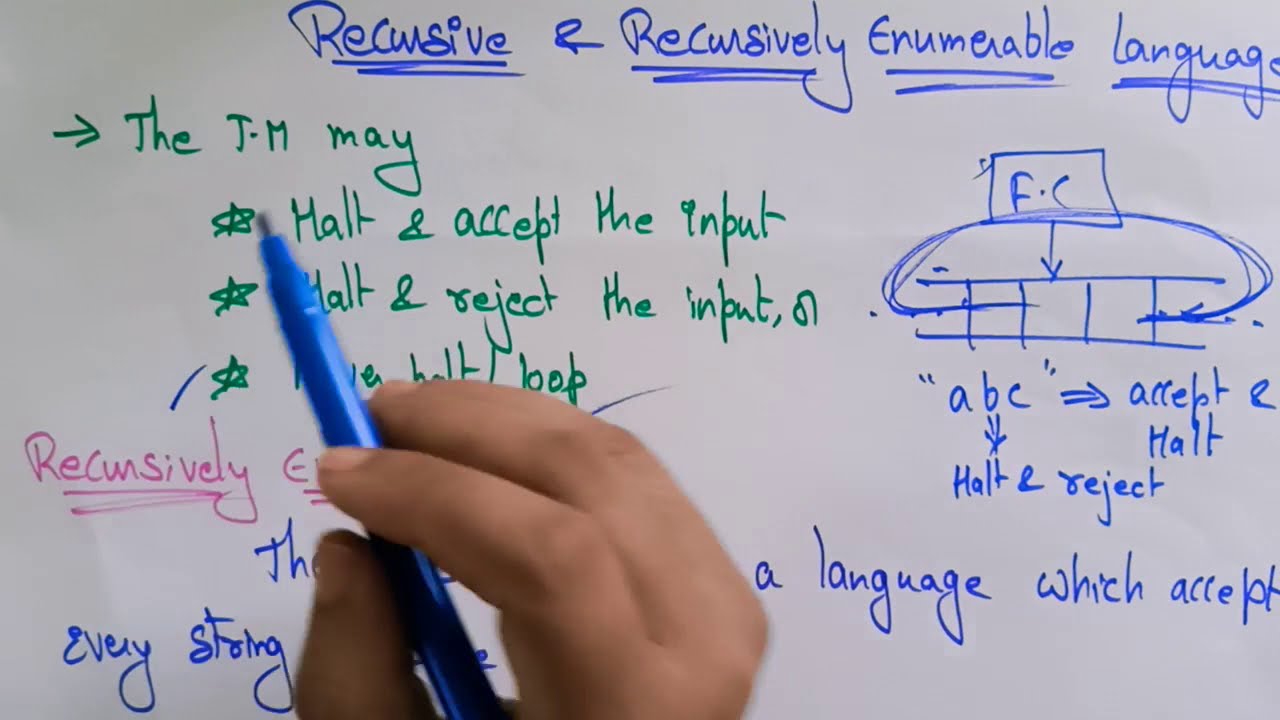 Recursive & Recursively Enumerable language
→ The T.M may
☆ Halt & accept the input
☆ Halt & reject the input, or
☆ halt/ loop
Recursively
F.C
"abc" ⇒ accept &
Halt
Halt & reject
a language which accept
Every string